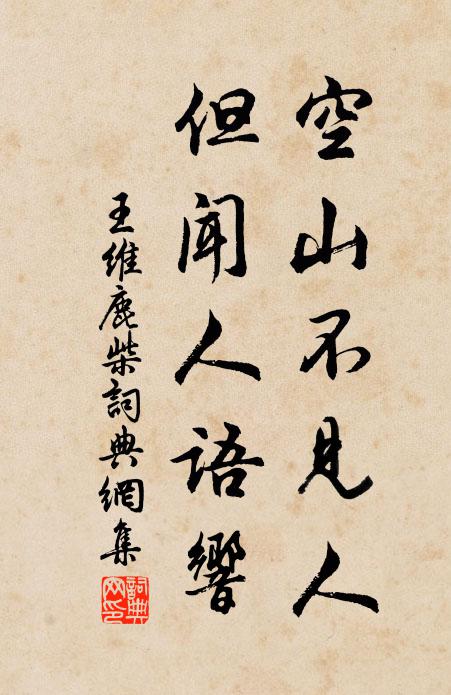 空山不見人
但聞人語響
王維鹿柴詞典網集
詞典
网印